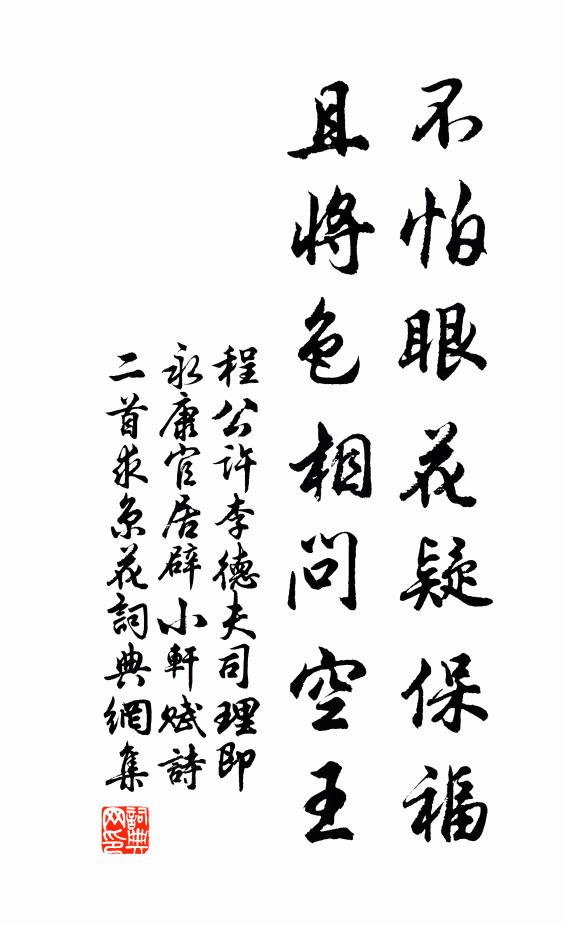 不怕眼花疑保福
且將色相問空王
程公許李德夫司理即
永康官居辟小軒賦詩
二首求奈花詞典網集
詞典
网印